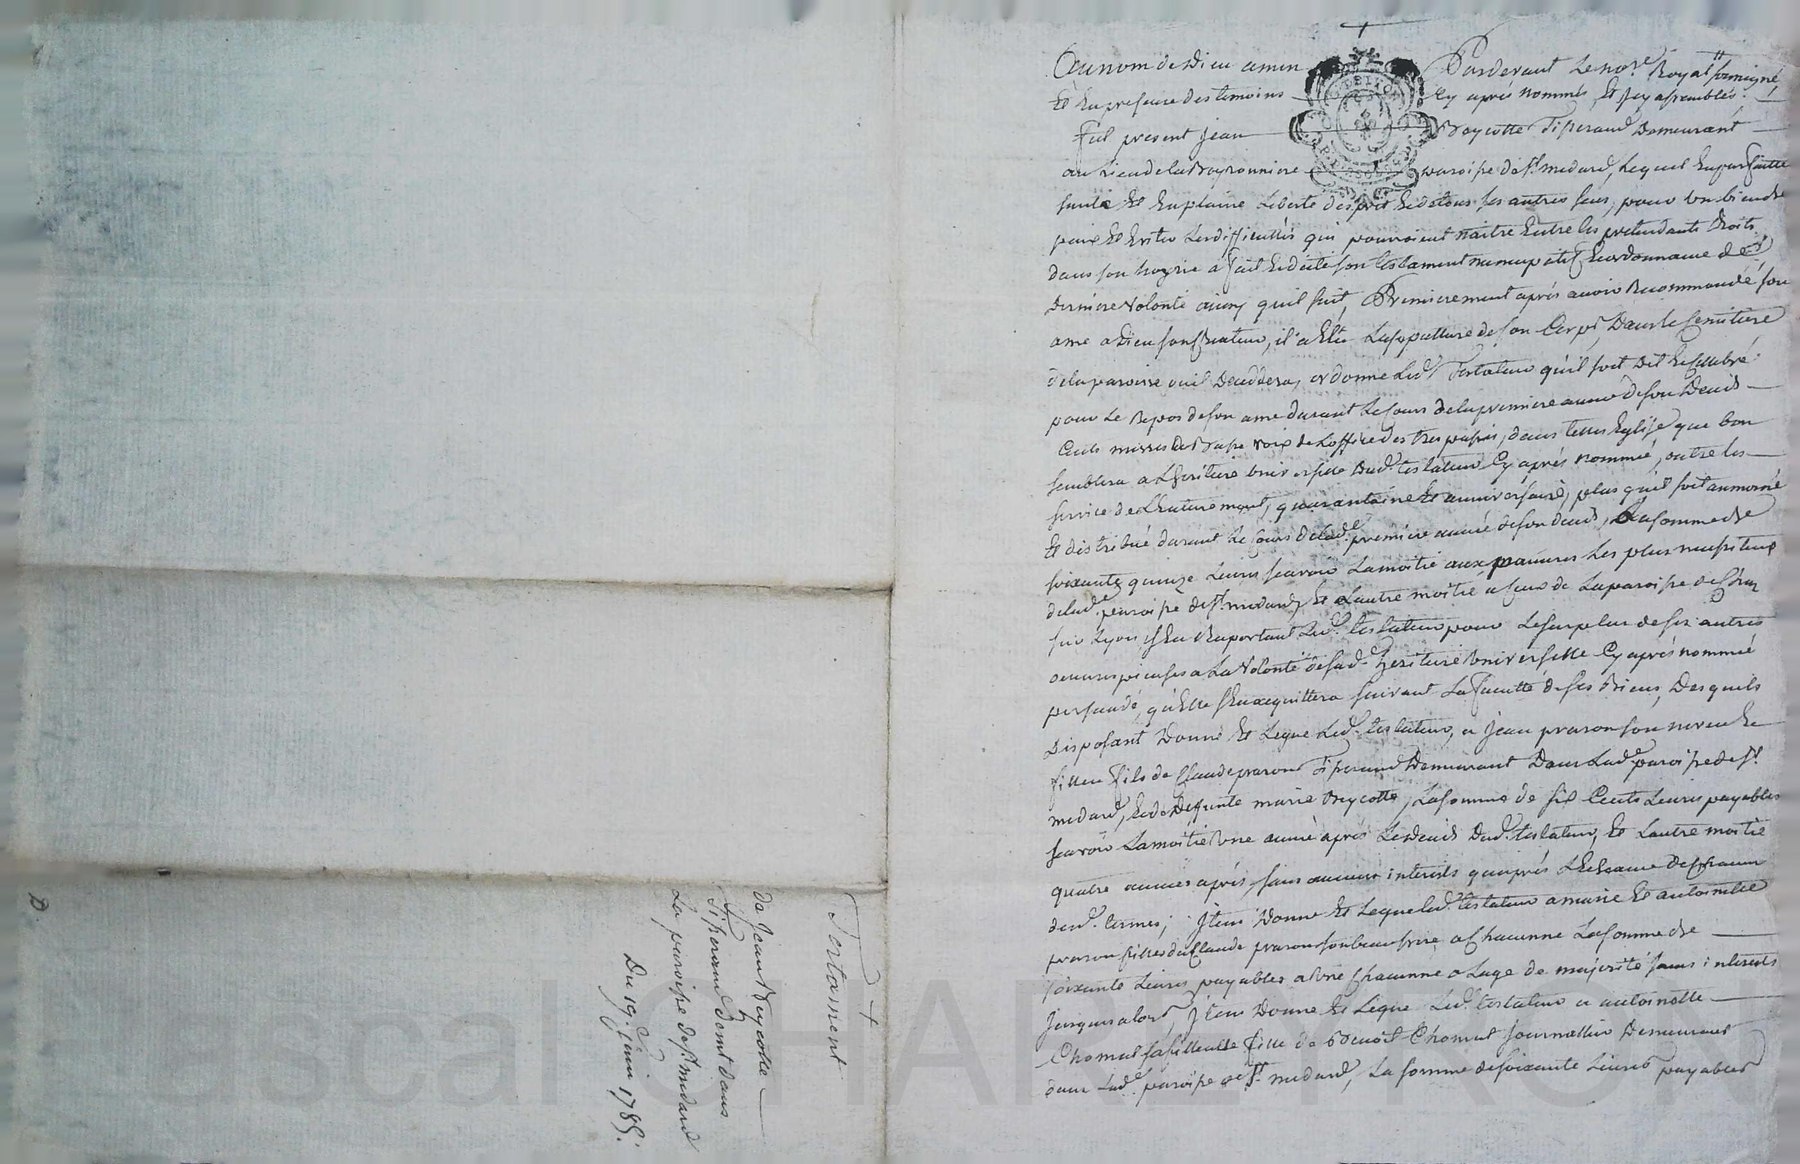 Au nom de Dieu amen Pardevant Le no.re Royal soussigné
Et En presence des temoins Cy après nommés, Et Icy assemblés
fut present jean Reycotte Tisserand Demeurant
au Lieu de la paroisse de S.t medard, Lequel En parfaitte
santé Et En plaine Liberté desprit Et de tous ses autres sens, pour un bien de
paix Et Eviter Les difficultés qui pouroient naitre Entre les pretendants Droits
dans son hoyrie a fait Et dicté son testament nuncupatif Et ordonnance de
Derniere volonté ainsy quil suit, Premierement après avoir Recommandé son
ame a Dieu son Createur, il a Elu La sepulture de son Corps, Dans le Cemitiere
de la paroisse ou il Deceddera, ordonne Led.t Testateur quil soit dit Et Celebré
pour Le Repos de son ame durant Le Cours de la premiere année de son Deces
Cents messes de Basse voix de Loffice des trepassés, dans telles Eglise que bon
semblera a LHeritiere universelle Dud.t testateur Cy après nommée, outre les
service de LEnterement, quarantaine Et anniversaire, plus quil soit aumoné
Et distribué durant Le Cours de lad.e premiere année de son deces, La somme de
soixante quinze Livres sçavoir La moitié aux pauvres Les plus necessiteux
de lad.e paroisse de S.t medard, Et Lautre moitié a Ceux de La paroisse de
sur Lyon, sEn Raportant Led.t testateur pour Le surplus de ses autres
oeuvres pieuses a La volonté de sad.e heritiere universelle Cy après nommée
persuadé, quElle sEn acquittera suivant La faculté de ses Biens, Desquels
Disposant Donne Et Legue Led.t testateur, a Jean prason son neveu Et
filleu fils de Claude prason Tisserand Demeurant Dans Lad.e paroisse de S.t
medard, Et de Deffunte marie Reycotte, La somme de six Cents Livres payables
sçavoir La moitié une année après Le deces Dud.t testateur, Et Lautre moitié
quatre années après, sans aucuns interests quaprès LEcheance de Chacun
desd.t termes; Item Donne Et Legue led.t testateur a marie Et antoinette
prason filles dud.t Claude prason son beau frere a Chacunne La somme de
soixante Livres payables a une Chacunne a Lage de majorité sans interests
Jusques alors, Item Donne Et Legue Led.t testateur a antoinette
Chomat sa filleulle fille de Benoit Chomat Journallier Demeurant
dans Lad.e paroisse de S.t medard, La somme de soixante Livres payables
Testament
de Jean Reycotte
Tisserand demt dans
La paroisse de S.t medard
Du 19.e juin 1785.
D.
scal CHAREYRON